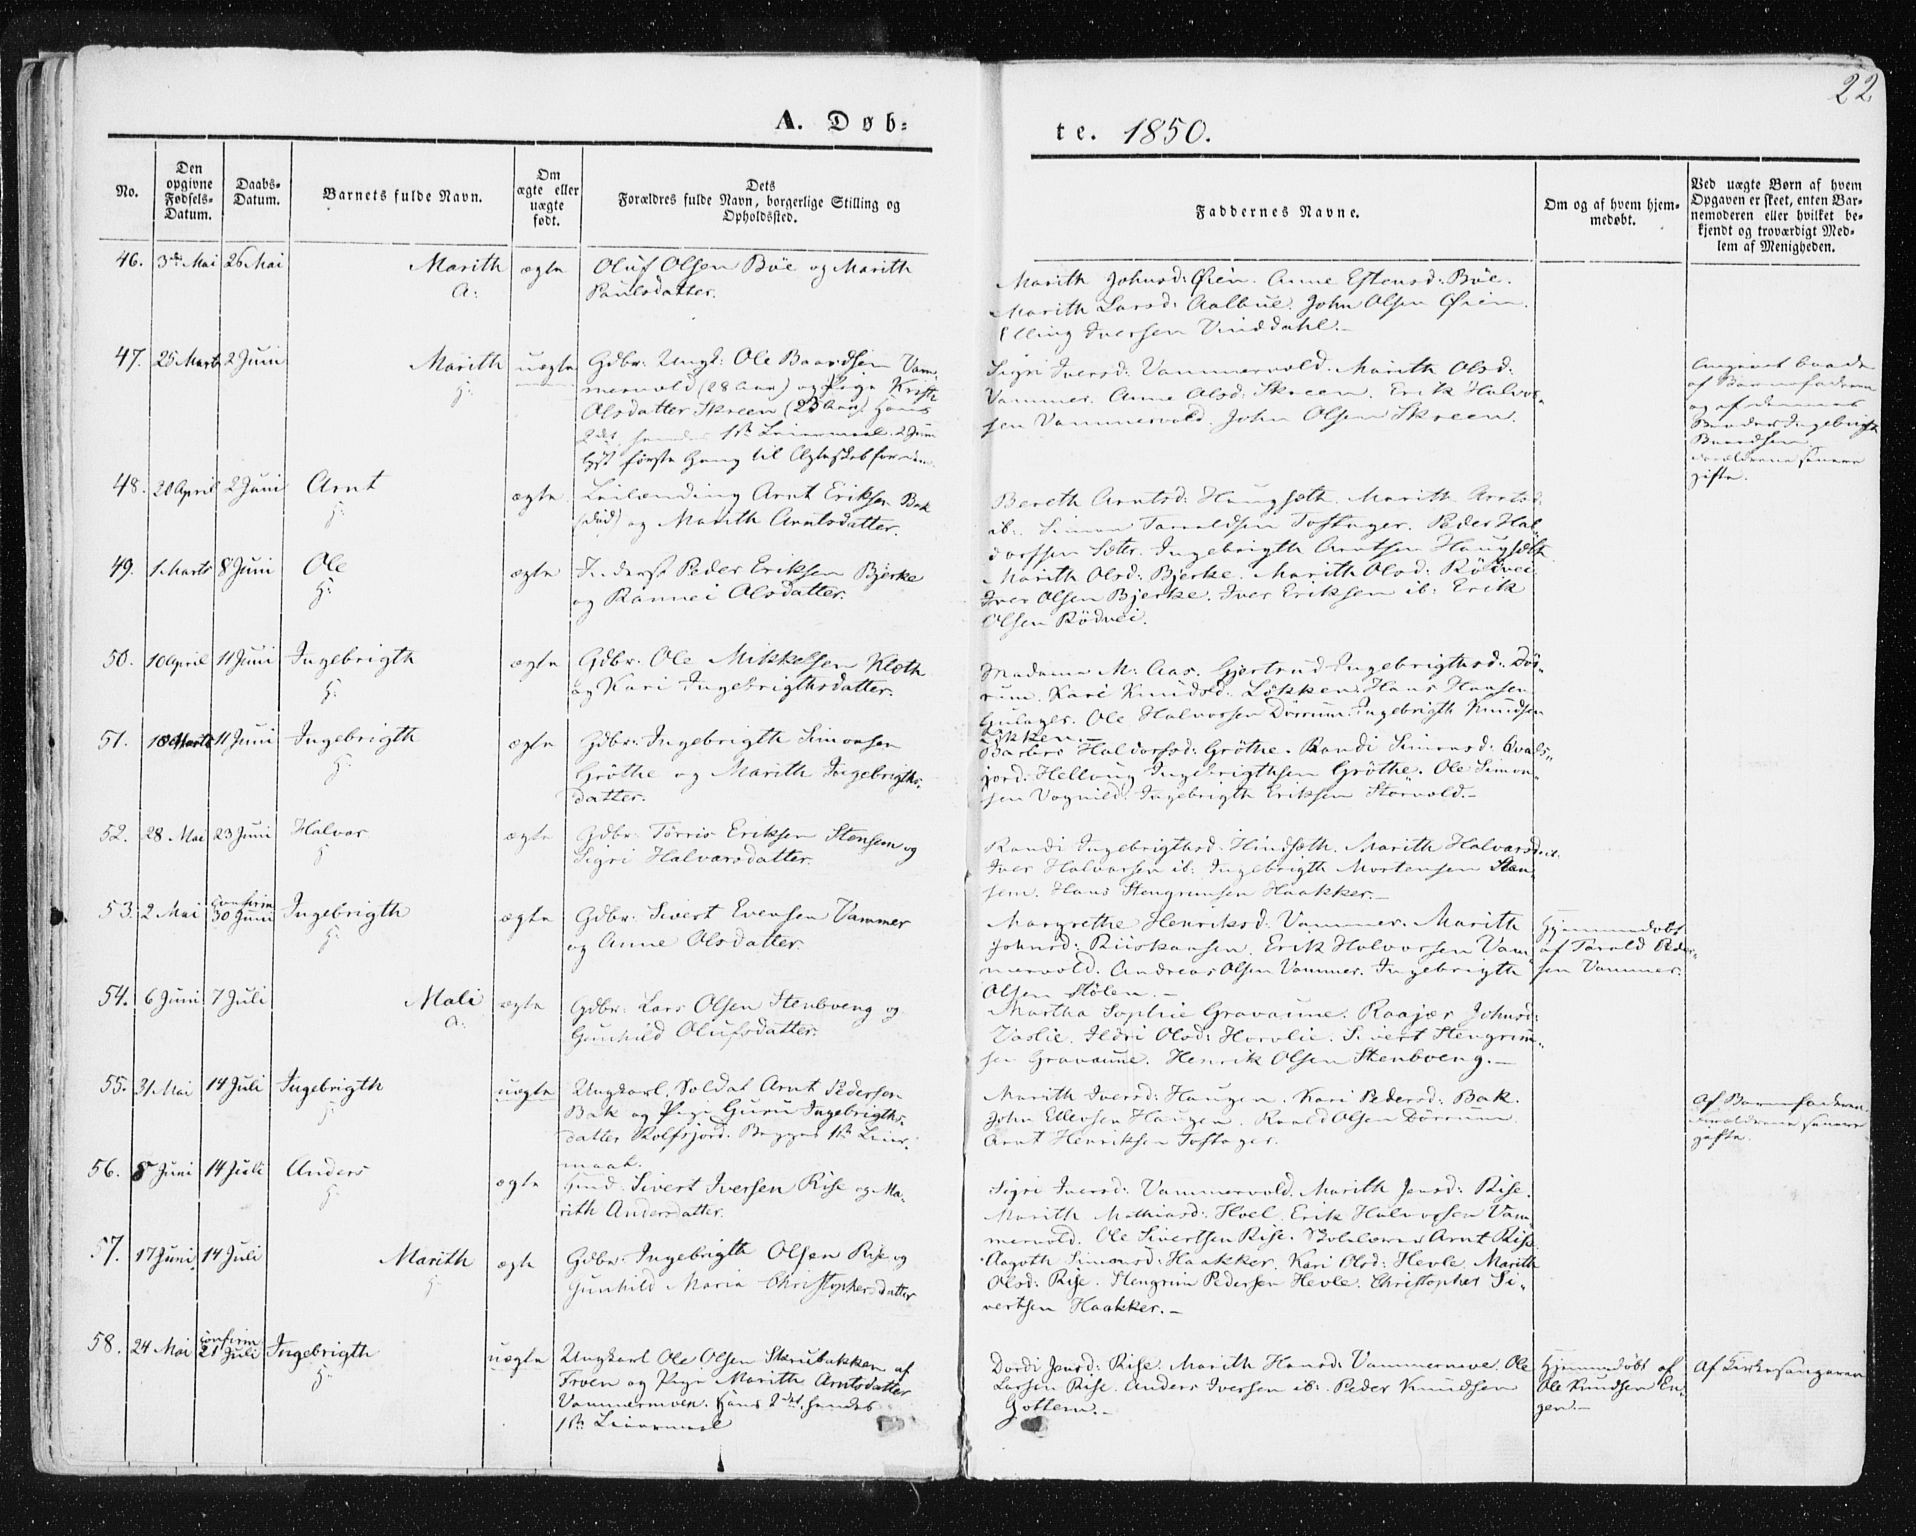 22
A. Døb-
te. 1850.
No.
Den opgivne Fødsels-Datum.
Daabs-Datum.
Barnets fulde Navn.
Om ægte eller uægte født.
Dets Forældres fulde Navn, borgerlige Stilling og Opholdssted.
Faddernes Navne.
Om og af hvem hjemmedøbt.
Ved uægte Børn af hvem Opgaven er skeet, enten Barnemoderen eller hvilket bekjendt og troværdigt Medlem af Menigheden.
46. 3die Mai 26 Mai Marith ægte Oluf Olsen Böe og Marith
A:
Paulsdatter.
Marith Johnsd: Øien. Anne Estensd: Böe.
Marith Larsd: Aalbue. John Olsen Øien.
Elling Iversen Vinddahl.
47. 25 Marts 2 Juni Marith uægte Gdbr: Ungk: Ole Baardsen Vam-
H:
mervold (28 Aar) og Pige
Olsdatter Skreen (23 Aar) Hans
2det, hendes 1ste Leiermaal. 2 Juni
lyst första Gang til Ægteskab for
Sigri Iversd: Vammervold. Marith Olsd:
Vammer. Anne Olsd: Skreen. Erik Halvor-
sen Vammervold. John Olsen Skreen.
Angivet baade
af Barnefaderen
og af dennes
Broder Ingebrigt
Baardsen.
Forældrene senere
gifte.
48. 20 April 2 Juni Arnt ægte Leilænding Arnt Eriksen Bak
H:
(död) og Marith Arntsdatter.
Bereth Arntsd: Haugseth. Marith Arntsd:
ib: Simon Tarraldsen Toftager. Peder Hal-
dorssen Sæter. Ingebrigth Arntsen Haugseth
49. 1 Marts 8 Juni Ole ægte Inderst Peder Eriksen Bjerke
H:
og Rönnei Olsdatter.
Marith Olsd: Bjerke. Marith Olsd: Rödvei
Iver Olsen Bjerke. Iver Eriksen ib: Erik
Olsen Rödvei.
50. 10 April 11 Juni Ingebrigth ægte Gdbr: Ole Mikkelsen Kleth
H:
og Kari Ingebrigthsdatter.
Madame M: Aas. Gjertrud Ingebrigthsd: Dör-
rum. Kari Knudsd: Løkken. Hans Hansen
Gulager. Ole Halvorsen Dörrum. Ingebrigth Knudsen
Løkken.
51. 18 Marts 11 Juni Ingebrigth ægte Gdbr: Ingebrigth Simonsen
H:
Gröthe og Marith Ingebrigths-
datter.
Barbro Haldorsd: Gröthe. Randi Simonsd:
Ingebrigthsen Gröthe. Ole Simon-
sen Vognild. Ingebrigth Eriksen Storvold.
52. 28 Mai 23 Juni Halvor ægte Gdbr: Törris Eriksen Stensem og
H
Sigri Halvorsdatter.
Randi Ingebrigthsd: Hindseth. Marith Halvorsd:
Iver Halvorsen ib: Ingebrigth Mortensen Sten-
sem. Hans Stengrimsen Haakker.
53. 2 Mai confirm 30 Juni Ingebrigth ægte Gdbr: Sivert Evensen Vammer
H:
og Anne Olsdatter
Margrethe Henriksd: Vammer. Marith
Johnsd: Riiskaasen. Erik Halvorsen Vam-
mervold. Andreas Olsen Vammer. Ingebrigth
Olsen Stölen.
Hjemmedøbt
af Tarald Peder-
sen Vammer.
54. 6 Juni 7 Juli Mali ægte Gdbr: Lars Olsen Stenboeng og
A:
Gunhild Olufsdatter.
Martha Sophie Gravaune. Raajær Johnsd:
Vaslie. Ildri Olsd: Horvlie. Sivert Stengrim-
sen Gravaune. Henrik Olsen Stenboeng.
55. 31 Mai 14 Juli Ingebrigth uægte Ungkarl. Soldat Arnt Pedersen
H:
Bak og Pige Guru Ingebrigths-
datter Rolfsjord. Begges 1ste Leier-
maal.
Marith Iversd: Haugen. Kari Pedersd: Bak.
John Ellevsen Haugen. Roald Olsen Dörrum.
Arnt Henriksen Toftager.
Af Barnefaderen.
Forældrene senere
gifte.
56. 8 Juni 14 Juli Anders ægte Sivert Iversen Rise og Ma-
H:
rith Andersdatter.
Sigri Iversd: Vammervold. Marith Jensd: Rise.
Marith Mathiasd: Hoel. Erik Halvorsen Vam-
mervold. Ole Sivertsen Rise. Skolelærer Arnt Rise
57. 17 Juni 14 Juli Marith ægte Gdbr: Ingebrigth Olsen Rise og
H
Gunhild Maria Christophersdatter
Aagoth Simonsd: Haakker. Kari Olsd: Hevle. Marith
Olsd: Rise. Stengrim Pedersen Hevle. Christopher Si-
vertsen Haakker.
58. 24 Mai confirm 21 Juli Ingebrigth uægte Ungkarl Ole Olsen Skrubakken af
H:
Troen og Pige Marith Arntsdatter
Vammermoen. Hans 2det, hendes
1ste Leiermaal
Dordi Jensd: Rise. Marith Hansd: Vammermoe. Ole
Larsen Rise. Anders Iversen ib: Peder Knudsen
Gottem.
Hjemmedöbt af
Ole Knudsen En-
gen.
Af Kirkesangeren